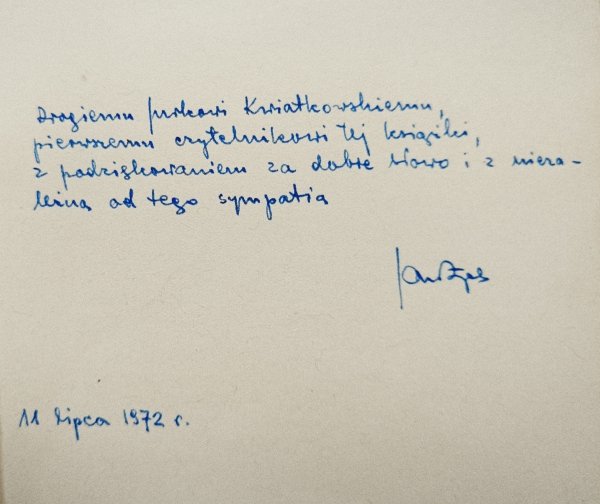 Drogiemu Jurkowi Kwiatkowskiemu,
pierwszemu czytelnikowi tej książki,
z podziękowaniem za dobre słowo i z nieza-
leżną od tego sympatią
11 lipca 1972 r.